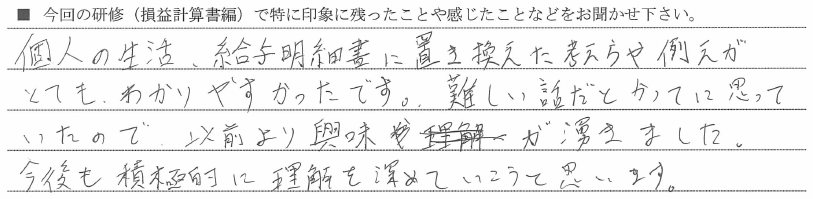 ■ 今回の研修（損益計算書編）で特に印象に残ったことや感じたことなどをお聞かせ下さい。
個人の生活、給与明細書に置き換えた考え方や例えが
とても、わかりやすかったです。難しい話だとかってに思って
いたので、以前より興味が湧きました。
今後も積極的に理解を深めていこうと思います。